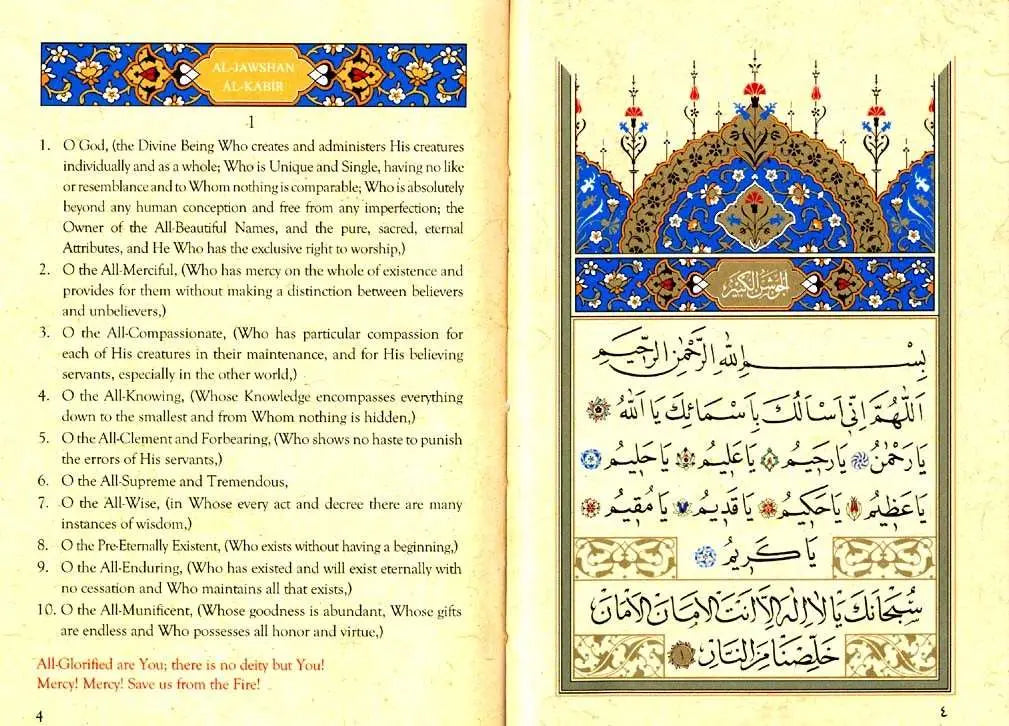 AL-JAWSHAN
AL-KABĪR
1
1. O God, (the Divine Being Who creates and administers His creatures
individually and as a whole; Who is Unique and Single, having no like
or resemblance and to Whom nothing is comparable; Who is absolutely
beyond any human conception and free from any imperfection; the
Owner of the All-Beautiful Names, and the pure, sacred, eternal
Attributes, and He Who has the exclusive right to worship,)
2. O the All-Merciful, (Who has mercy on the whole of existence and
provides for them without making a distinction between believers
and unbelievers,)
3. O the All-Compassionate, (Who has particular compassion for
each of His creatures in their maintenance, and for His believing
servants, especially in the other world,)
4. O the All-Knowing, (Whose Knowledge encompasses everything
down to the smallest and from Whom nothing is hidden,)
5. O the All-Clement and Forbearing, (Who shows no haste to punish
the errors of His servants,)
6. O the All-Supreme and Tremendous,
7. O the All-Wise, (in Whose every act and decree there are many
instances of wisdom,)
8. O the Pre-Eternally Existent, (Who exists without having a beginning,)
9. O the All-Enduring, (Who has existed and will exist eternally with
no cessation and Who maintains all that exists,)
10. O the All-Munificent, (Whose goodness is abundant, Whose gifts
are endless and Who possesses all honor and virtue,)
All-Glorified are You; there is no deity but You!
Mercy! Mercy! Save us from the Fire!
4
اَلْجَوْشَنُ الْكَبِيرُ
بِسْمِ اللّٰهِ الرَّحْمٰنِ الرَّحِيمِ
اَللّٰهُمَّ اِنِّي اَسْاَلُكَ بِاَسْمَائِكَ يَا اَللّٰهُ
يَا رَحْمٰنُ يَا رَحِيمُ يَا عَلِيمُ يَا حَلِيمُ
يَا عَظِيمُ يَا حَكِيمُ يَا قَدِيمُ يَا مُقِيمُ
يَا كَرِيمُ
سُبْحَانَكَ يَا لَا اِلٰهَ اِلَّا اَنْتَ الْاَمَانَ الْاَمَانَ
خَلِّصْنَا مِنَ النَّارِ ١
٤